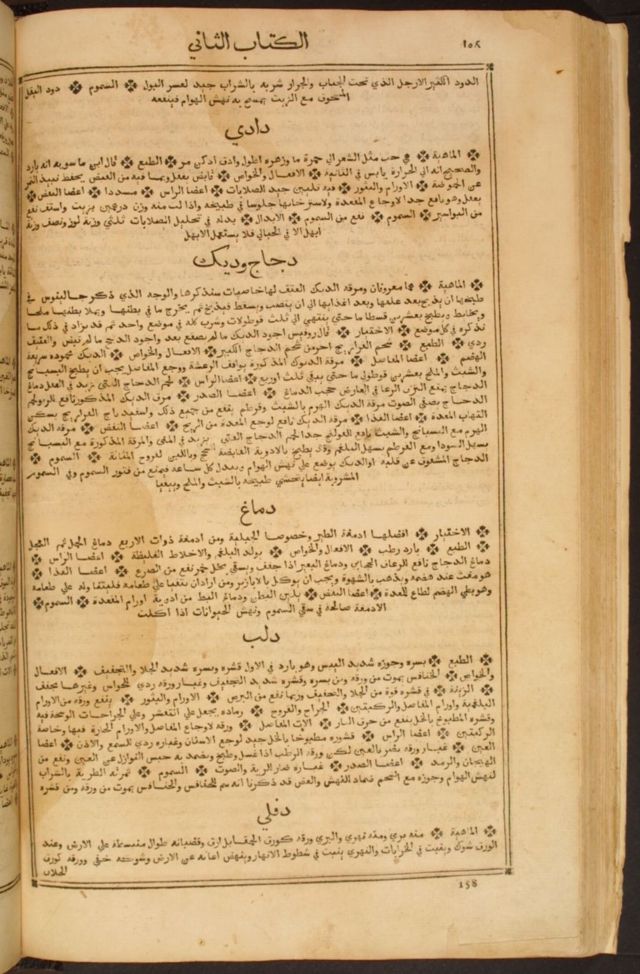 ١٥٨
الكتاب الثاني
الدود الكثير الارجل الذي تحت الجباب والجرار شربه بالشراب جيد لعسر البول السموم دود البقل
المسحوق مع الزيت يمسح به نهش الهوام فينفعه
دادي
الماهية هي حب مثل الشعير الي حمرة ما وزهره اطول وادق ادكن مر الطبع قال ابن ماسويه انه بارد
والصحيح انه الي الحرارة يابس في الثانية الافعال والخواص قابض يعقل وبما فيه من العفص يحفظ نبيذ التمر
عن الحموضة الاورام والبثور فيه تليين جيد للصلابات اعضا الراس مسددا اعضا النفض
يعقل وهو نافع جدا لاوجاع المقعدة ولاسترخايها جلوسا في طبيخه واذا لت منه وزن درهمين بزيت واستف نفع
من البواسير السموم نفع من السموم الابدال بدله في تحليل الصلابات ثلثي وزنه لوز ونصف وزنه
ابهل الا في الحبالي فلا يستعمل الابهل
دجاج وديك
الماهية هما معروفان ومرقة الديك العتيق لها خاصيات سنذكرها والوجه الذي ذكر جالينوس في
طبخها ان يذبح بعد علفها وبعد اغذايها الي ان ينصب ويسقط فيذبح ثم يخرج ما في بطنها ويملا بطنها ملحا
ويخاط ويطبخ بعشرين قسطا ما حتي ينتهي الي ثلث قوطولات وشرب كله في موضع واحد ثم قد يزاد في ذلك ما
نذكره في كل موضع الاختيار قال روفس اجود الديك ما لم يصقع بعد واجود الدجج ما لم تبض والعتيق
ردي الطبع شحم الفراريج احر من شحم الدجاج الكبير الافعال والخواص الديك محمودة سريعة
الهضم اعضا المفاصل مرقة الديوك المذكورة يوافق الرعشة ووجع المفاصل يجب ان يطبخ البسبايج
والشبث والملح بعشرين قوطولي ما حتي يبقي ثلث اوزيع اعضا الراس لحم الدجاج الفتي تزيد في العقل دماغ
الدجاج يمنع النزف الرعافي العارض حجب الدماغ اعضا الصدر مرق الديك المذكور نافع للربو لحم
الدجاج يصفي الصوت مرقة الديك الهرم بالشبث وقرطم ينفع من جميع ذلك واسفيدباج الفراريج يسكن
التهاب المعدة اعضا الغذا مرقة الديك نافع لوجع المعدة من الريح اعضا النفض مرقة الديك
الهرم مع البسبايج والشبث نافع للقولنج جدا لحم الدجاج الفتي يزيد في المني والمرقة المذكورة مع البسبايج
يسهل السودا ومع القرطم يسهل البلغم وقد يطبخ بالادوية القابضة للسحج وباللبن لقروح المثانة السموم
الدجاج المشقوق عن قلبه او الديك يوضع علي نهش الهوام ويبدل كل ساعة فيمنع من فتور السموم وفي السموم
المشروبة ايضا يتحسي طبيخه بالشبث والملح ويتقيا
دماغ
الاختيار افضلها ادمغة الطير وخصوصا الجبلية ومن ادمغة ذوات الاربع دماغ الحمل ثم العجل
الطبع بارد رطب الافعال والخواص يولد البلغم والاخلاط الغليظة اعضا الراس
دماغ الدجاج نافع للرعاف الحجابي ودماغ البعير اذا جفف وسقي بخل خمر نفع من الصرع اعضا الغذا
هو مغث عند هضمه ويذهب بالشهوة ويجب ان يوكل بالابازير ومن اراد ان يتقيا علي طعامه فليتناوله علي طعامه
وهو بطي الهضم لطاخ للمعدة اعضا النفض يلين البطن ودماغ البط من ادوية اورام المقعدة السموم
الادمغة صالحة في سقي السموم ونهش الحيوانات اذا اكلت
دلب
الطبع بسره وجوزه شديد اليبس وهو بارد في الاول قشره وبسره شديد الجلا والتجفيف الافعال
والخواص الخنافس يموت من ورقه ومن بسره وقشره شديد التجفيف وغبار ورقه ردي للحواس وغيرها يجفف
الزينة في قشره قوة من الجلا والتجفيف وربما نفع من البرص الاورام والبثور ينفع ورقه من الاورام
البلغمية واورام المفاصل والركبتين الجراح والقروح رماده يجعل علي التقشر وعلي الجراحات الوسخة فيه
وقشره المطبوخ بالخل ينفع من حرق النار الات المفاصل ورقه لاوجاع المفاصل والاورام الحارة فيها وخاصة
الركبتين اعضا الراس قشوره مطبوخا بالخل جيد لوجع الاسنان وغباره ردي السمع والاذن اعضا
العين غبار ورقه يضر بالعين لكن ورقه الرطب اذا غسل وطبخ وضمد به حبس النوازل عن العين ونفع من
الهيجان والرمد اعضا الصدر غباره ضار الرية والصوت السموم ثمرته الطرية بالشراب
لنهش الهوام وجوزه مع الشحم ضماد للنهش والعض قد ذكرنا انه سم للخنافس والخنافس يموت من ورقه ومن قشره
دفلي
الماهية منه بري ومنه نهري والبري ورقه كورق الحمقا بل ارق وقضبانه طوال منبسطة علي الارض وعند
الورق شوك وينبت في الخرابات والنهري ينبت في شطوط الانهار وينهض اعانه عن الارض وشوكه خفي وورقه كورق
الخلاف
158